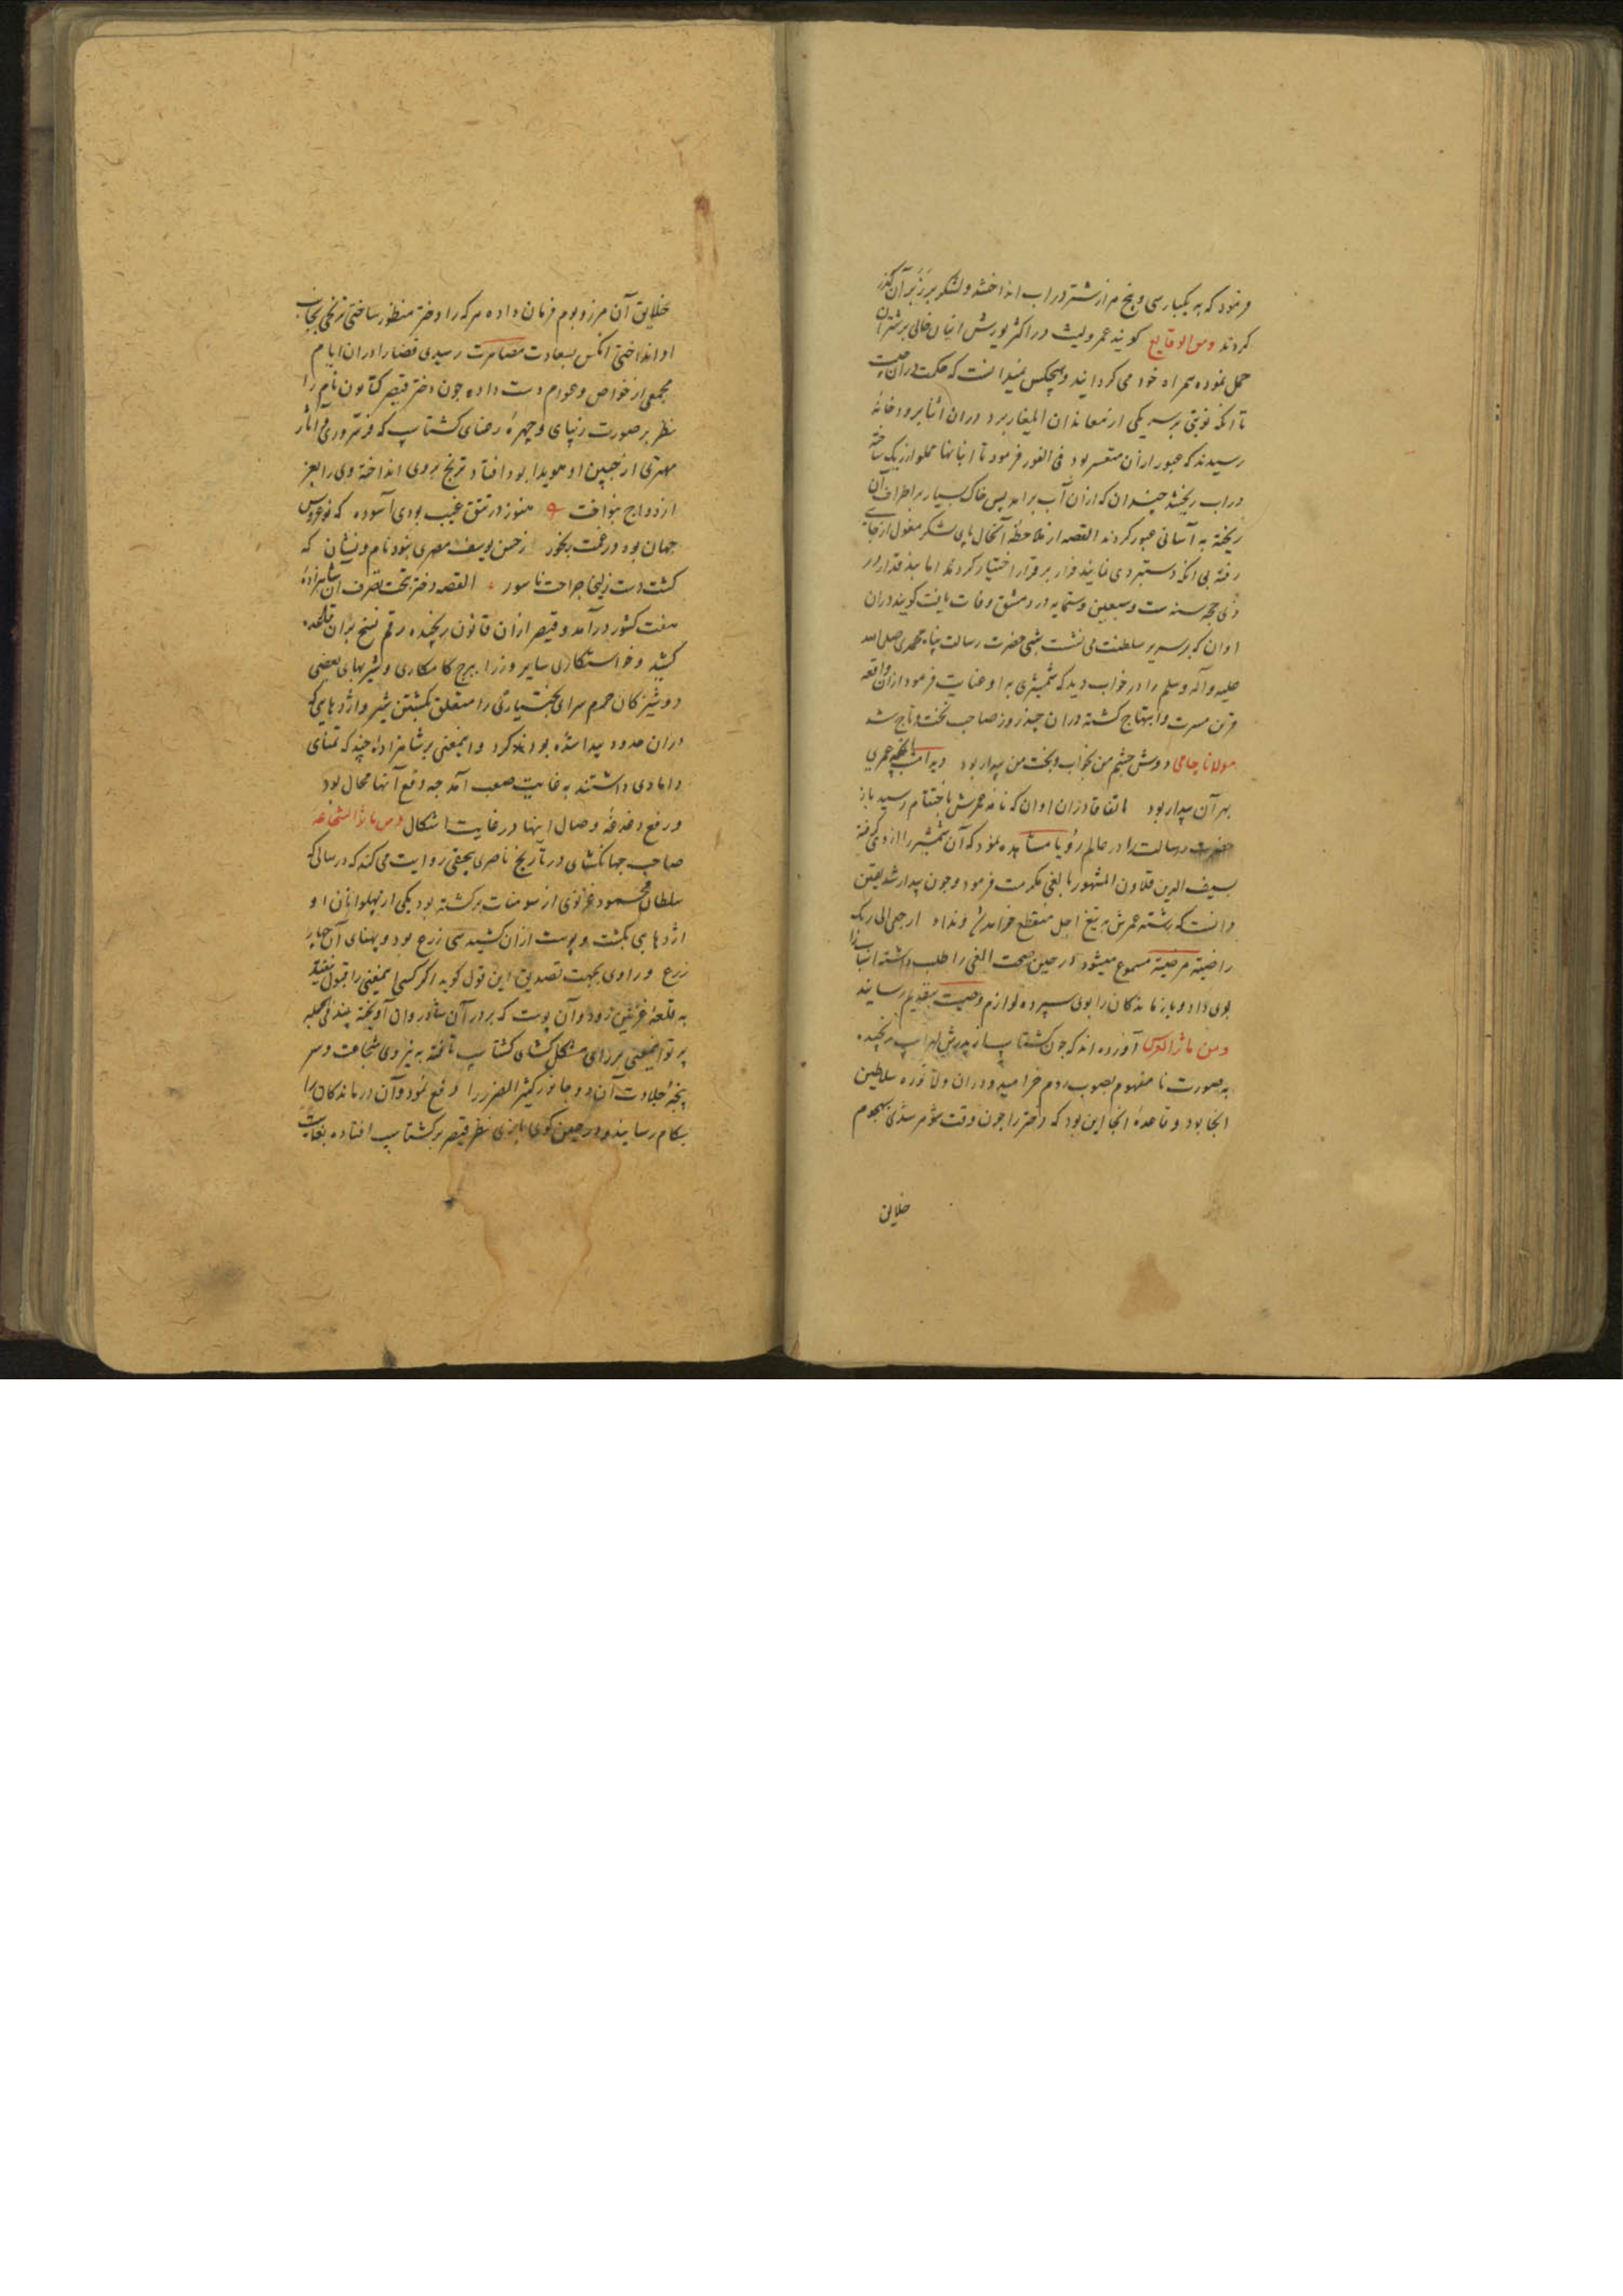 فرمود که به یکبار سی و پنج هزار شتر در آب انداخشد و لشکر بر زبر آن گذر
کردند ومن الوقایع گویند عمرو لیث در اکثر یورش انبان خالی بر شتران
حمل نموده همراه خود می گردانید و هیچکس نمیدانست که حکمت در آن چیست
تا آنکه نوبتی بر سر یکی از معاندان ایلغار برد در ان اثنا برودخانه
رسیدند که عبور از ان متعسر بود فی الفور فرمود تا انبانها مملو از ریک ساخته
در اب ریختند چندان که از ان آب برامد پس خاک بسیار بر اطراف آن
ریخته به آسانی عبور کردند القصه از ملاحظه آنحال پای لشکر مغول از جای
رفته بی انکه دستبردی نمایند فرار بر قرار اختیار کردند اما بندقدار در
ذی حجه سنه ست و سبعین و ستمایه در دمشق وفات یافت گویند در ان
اوان که بر سریر سلطنت می نشست شبی حضرت رسالت پناه محمدی صلی الله
علیه و آله وسلم را در خواب دید که شمشیری به او عنایت فرمود از ان واقعه
قرین مسرت و ابتهاج گشته در ان چند روز صاحب تخت و تاج شد
مولانا جامی دوش چشم من بخواب و بخت من بیدار بود دید امشب انچه عمری
بهر آن بیدار بود اتفاقا در ان اوان که نامه عمرش باختتام رسید باز
حضرت رسالت را در عالم رؤیا مشاهده نمود که آن شمشیر را از وی گرفته
بسیف الدین قلاون المشهور بالفی مکرمت فرمود و چون بیدار شد یقین
دانست که رشته عمرش به تیغ اجل منقطع خواهد و نداء ارجعی الی ربک
راضیة مرضیة مسموع میشود در حین صحت الفی را طلب داشته
بوی داد و بازماندگان را بوی سپرده لوازم وصیت بتقدیم رسانید
ومن ماثر آورده اند که چون گشتاسپ از پدرش لهراسپ رنجیده
به صورت نا مفهوم بصوب روم خرامید و در ان ولا توره سلاطین
انجا بود و قاعده انجا این بود که دختر را چون وقت شوهر شدی بهجوم
خلایق
خلایق آن مرز و بوم فرمان داده هر که را دختر منظور ساختی ترنجی بجانب
او انداختی انکس بسعادت مصاهرت رسیدی قضا را در ان ایام
مجمعی از خواص و عوام دست داده چون دختر قیصر کتایون نام را
نظر بر صورت زیبای و چهرهٔ رعنای گشتاسپ که فر سروری و آثار
مهتری از جبین او هویدا بود افتاد ترنج بروی انداخته وی را بعز
ازدواج بنواخت هنوز در تتق غیب بودی آسوده که نوعروس
جهان بود در غمت رنجور ز حسن یوسف مصری نبود نام و نشان که
گشت دست زلیخا جراحت ناسور القصه دختر بتحت تصرف آن شاهزاده
هفت کشور درآمد و قیصر از ان قانون رنجیده رقم نسخ بر ان قاعده
کشید و خواستکاری سایر وزرا ببرج کامکاری و شیربهای بعضی
دوشیزکان حرم سرای بختیاری را متعلق بکشتن شیر و اژدهایی که
در ان حدود پیدا شده بودند کرد و اینمعنی بر شاهزاده چند که تمنای
دامادی داشتند به غایت صعب آمد چه دفع آنها محال بود
و رفع دغدغهٔ وصال اینها در غایت اشکال ومن ماثر الشجاعه
صاحب جهانگشای در تاریخ ناصری بیهقی روایت می کند که در سالی که
سلطان محمود غزنوی از سومنات برگشته بود یکی از پهلوانان او
اژدهایی بکشت و پوست از ان کشید سی زرع بود و پهنای آن چهار
زرع و راوی بجهت تصدیق این قول گوید اگر کسی اینمعنی را قبول نکند
به قلعهٔ غزنین رود و آن پوست که بر در آن شادروان آویخته بیند فی الجمله
پرتو اینمعنی بر رای مشکل گشای گشتاسپ تافته به نیروی شجاعت و سر
پنجهٔ جلادت آن دو جانور کثیر الضرر را دفع نمود و آن درماندگان را
بکام رسانید و در حین گوی بازی نظر قیصر بر گشتاسپ افتاده بغایت